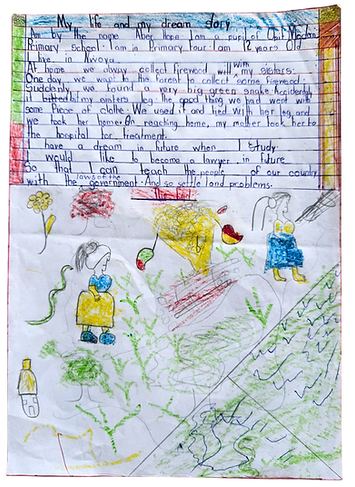 My life and my dream story
I am by the name Aber Hope I am a pupil of
Primary school I am in Primary four I am 12 years Old
I live in Nwoya.
At home we always collect firewood with my sisters.
One day we want to the forest to collect some firewood.
Suddenly we found a very big green snake Accidently
it bitted my sisters leg. the good thing we had went with
some Piece of clothe. We used it and tied with her leg and
we took her home. On reaching home, my mother took her to
the hospital for treatment.
I have a dream in future when I study
I would like to become a lawyer in future
So that I can teach the people of our country
with the laws of the government. And so settle land problems.
The End